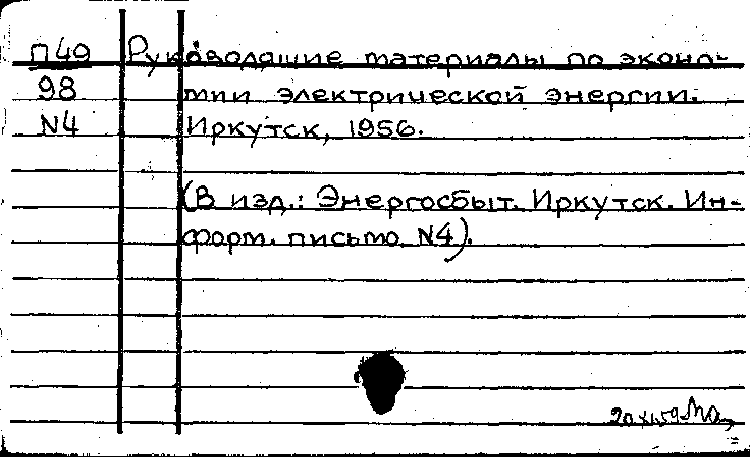 П49 Руководящие материалы по эконо-
98 мии электрической энергии.
N4 Иркутск, 1956.
(В изд.: Энергосбыт. Иркутск. Ин-
форм. письмо N4).